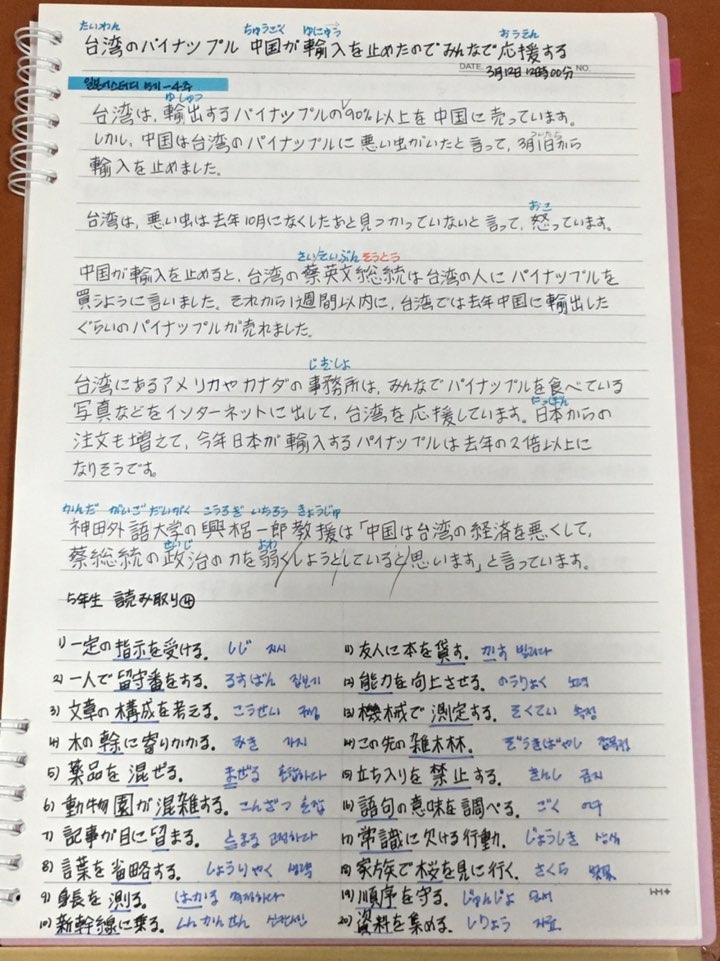 たいわん ちゅうごく ゆにゅう おうえん
台湾のパイナップル 中国が輸入を止めたのでみんなで応援する
DATE. 3月12日 12時00分 NO.
ゆしゅつ
台湾は、輸出するパイナップルの90%以上を中国に売っています。
しかし、中国は台湾のパイナップルに悪い虫がいたと言って、3月1日から
ついたち
輸入を止めました。
おこ
台湾は、悪い虫は去年10月になくしたあと見つかっていないと言って、怒っています。
さいえいぶん そうとう
中国が輸入を止めると、台湾の蔡英文総統は台湾の人にパイナップルを
買うように言いました。それから1週間以内に、台湾では去年中国に輸出した
ぐらいのパイナップルが売れました。
じむしょ
台湾にあるアメリカやカナダの事務所は、みんなでパイナップルを食べている
写真などをインターネットに出して、台湾を応援しています。日本からの
にっぽん
注文も増えて、今年日本が輸入するパイナップルは去年の2倍以上に
なりそうです。
かんだ がいご だいがく こうろぎ いちろう きょうじゅ
神田外語大学の興梠一郎教援は「中国は台湾の経済を悪くして、
せいじ よわ
蔡総統の政治の力を弱くしようとしていると思います」と言っています。
5年生 読み取り④
1) 一定の指示を受ける。 しじ 지시
2) 一人で留守番をする。 るすばん 집보기
3) 文章の構成を考える。 こうせい 구성
4) 木の幹に寄りかかる。 みき
5) 薬品を混ぜる。 まぜる 혼합하다
6) 動物園が混雑する。 こんざつ 혼잡
7) 記事が目に留まる。 とまる
8) 言葉を省略する。 しょうりゃく 생략
9) 身長を測る。 はかる
10) 新幹線に乗る。 しんかんせん 신칸센
11) 友人に本を貸す。 かす 빌리다
12) 能力を向上させる。 のうりょく 능력
13) 機械で測定する。 そくてい 측정
14) この先の雑木林。 ぞうきばやし 잡목림
15) 立ち入りを禁止する。 きんし 금지
16) 語句の意味を調べる。 ごく 어구
17) 常識に欠ける行動。 じょうしき 상식
18) 家族で桜を見に行く。 さくら 벚꽃
19) 順序を守る。 じゅんじょ 순서
20) 資料を集める。 しりょう 자료